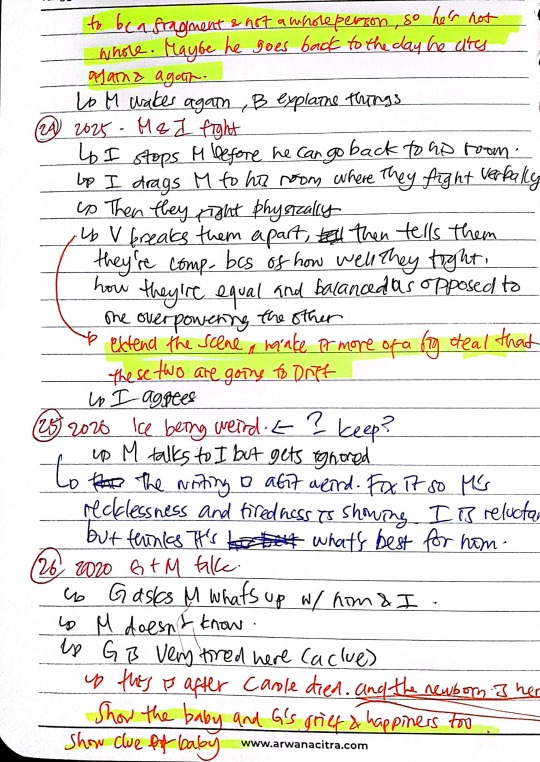 to be a fragment & not a whole person, so he's not
whole. Maybe he goes back to the day he dies
again & again.
↳ M wakes again, B explains things
(24) 2025 - M & I fight
↳ I stops M before he can go back to his room.
↳ I drags M to his room where they fight verbally
↳ Then they fight physically
↳ V breaks them apart, then tells them
they're comp. bcs of how well they fight.
how they're equal and balanced as opposed to
one overpowering the other
↳ extend the scene, make it more of a big deal that
these two are going to Drift
↳ I agrees
(25) 2020 Ice being weird. ← ? keep?
↳ M talks to I but gets ignored
↳ The writing is a bit weird. Fix it so M's
recklessness and tiredness is showing. I is reluctan
but thinks it's what's best for him.
(26) 2020 G + M talk.
↳ G asks M what's up w/ him & I.
↳ M doesn't know.
↳ G is very tired here (a clue)
↳ this is after Carole died. and the newborn is her
Show the baby and G's grief & happiness too.
Show clue of baby
www.arwanacitra.com